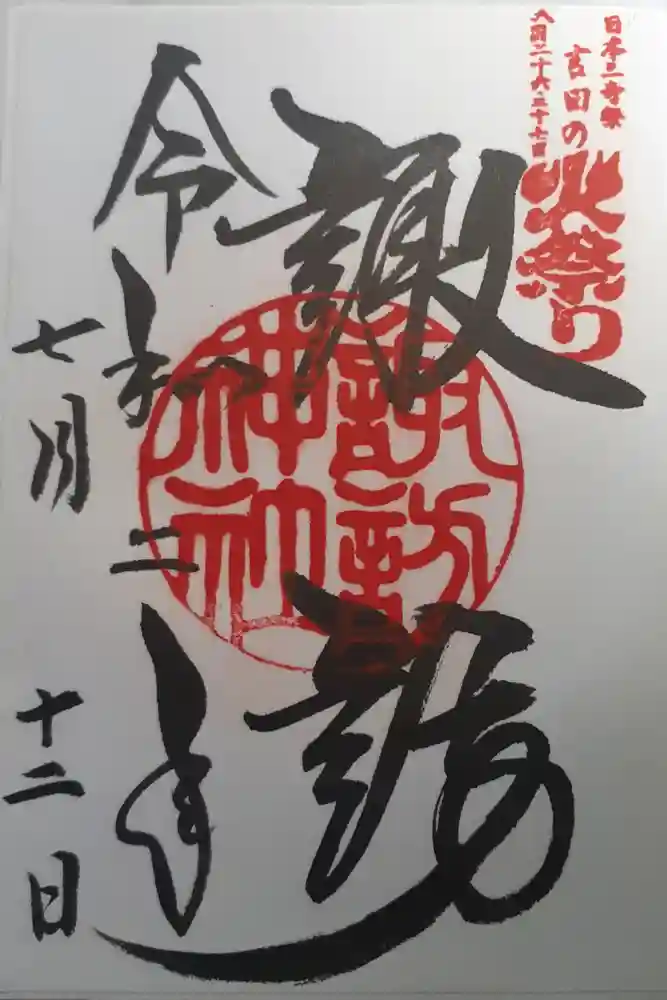 日本三奇祭
吉田の火祭り
八月二十六・二十七日
諏訪
諏訪
神社
令和二年
七月十二日